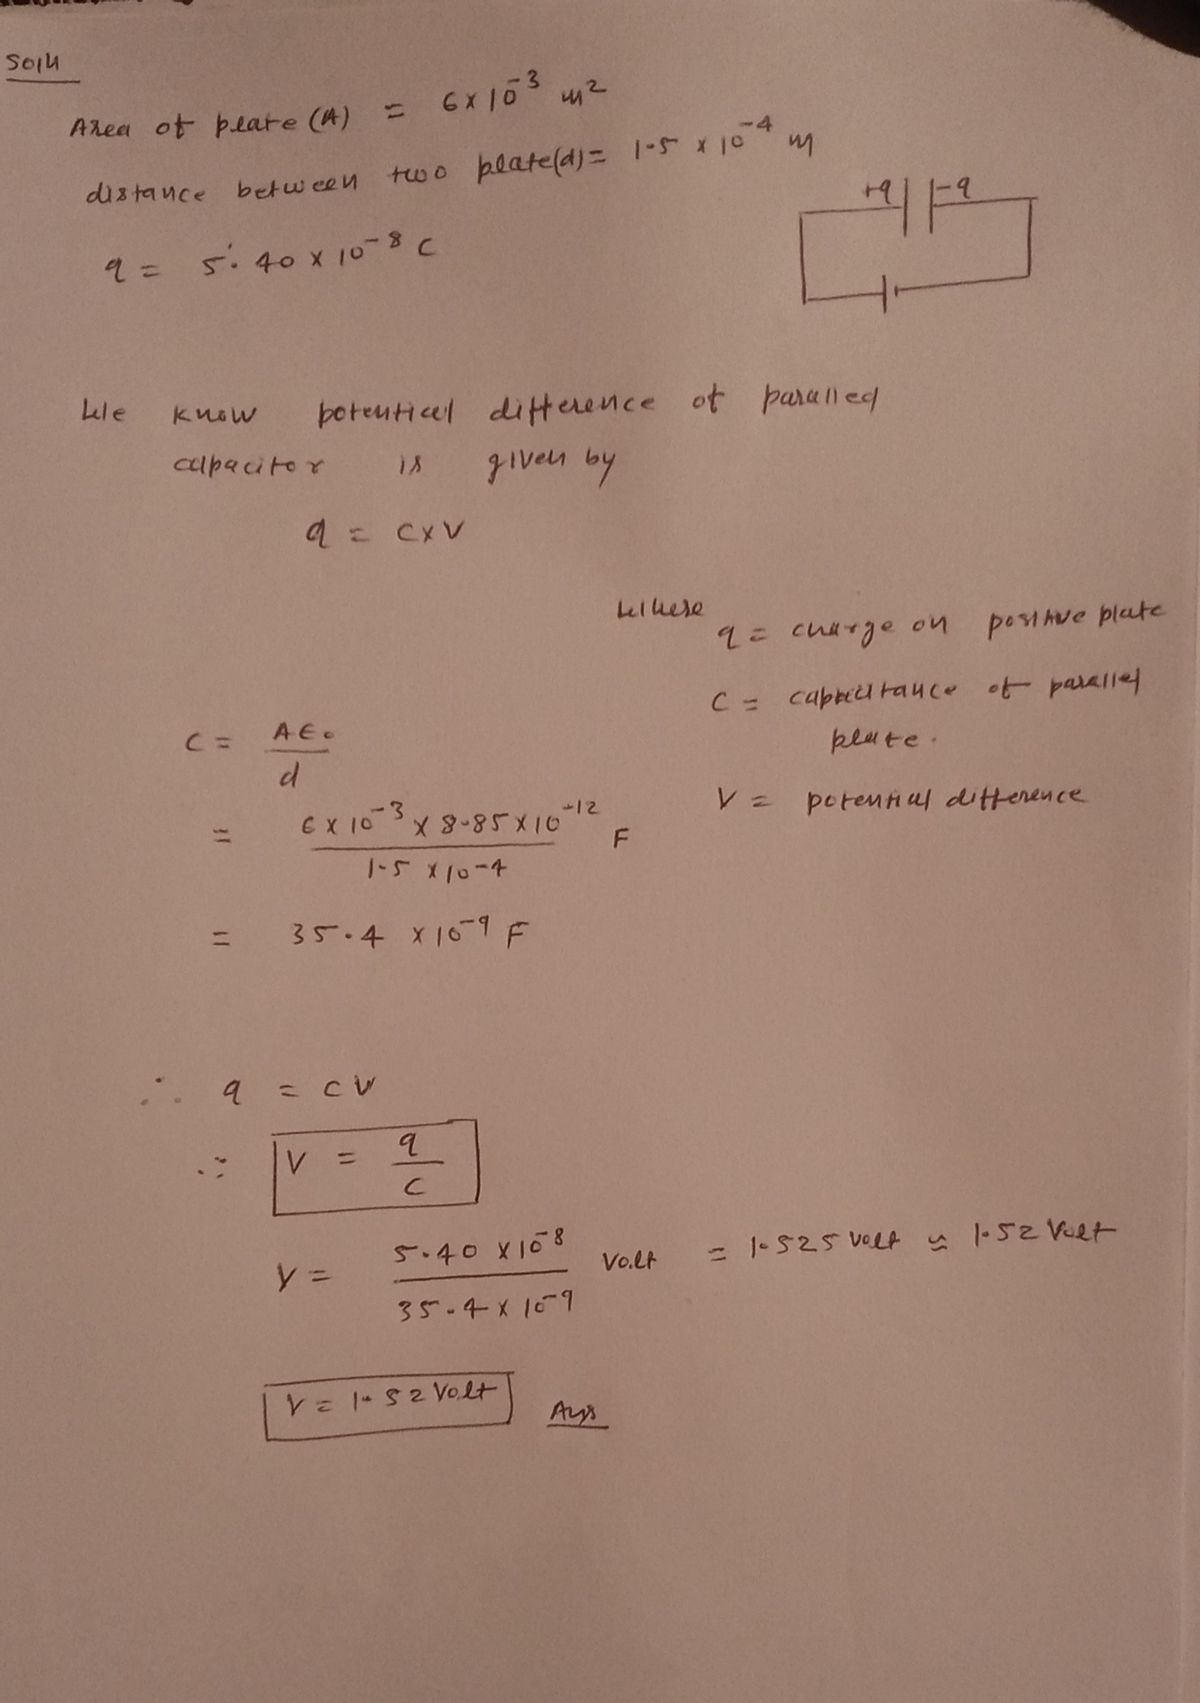 Soln
Area of plate (A) = 6 × 10⁻³ m²
distance between two plate(d) = 1.5 × 10⁻⁴ m
+q -q
q = 5.40 × 10⁻⁸ C
We know potential difference of paralled
capacitor is given by
q = C×V
Where
q = charge on positive plate
C = capacitance of parallel
plate.
V = potential difference
C = Aϵ₀/d
= 6 × 10⁻³ × 8.85 × 10⁻¹² / 1.5 × 10⁻⁴ F
= 35.4 × 10⁻⁹ F
∴ q = CV
∴ V = q/C
V = 5.40 × 10⁻⁸ / 35.4 × 10⁻⁹ Volt = 1.525 volt ≈ 1.52 Volt
V = 1.52 Volt Ans